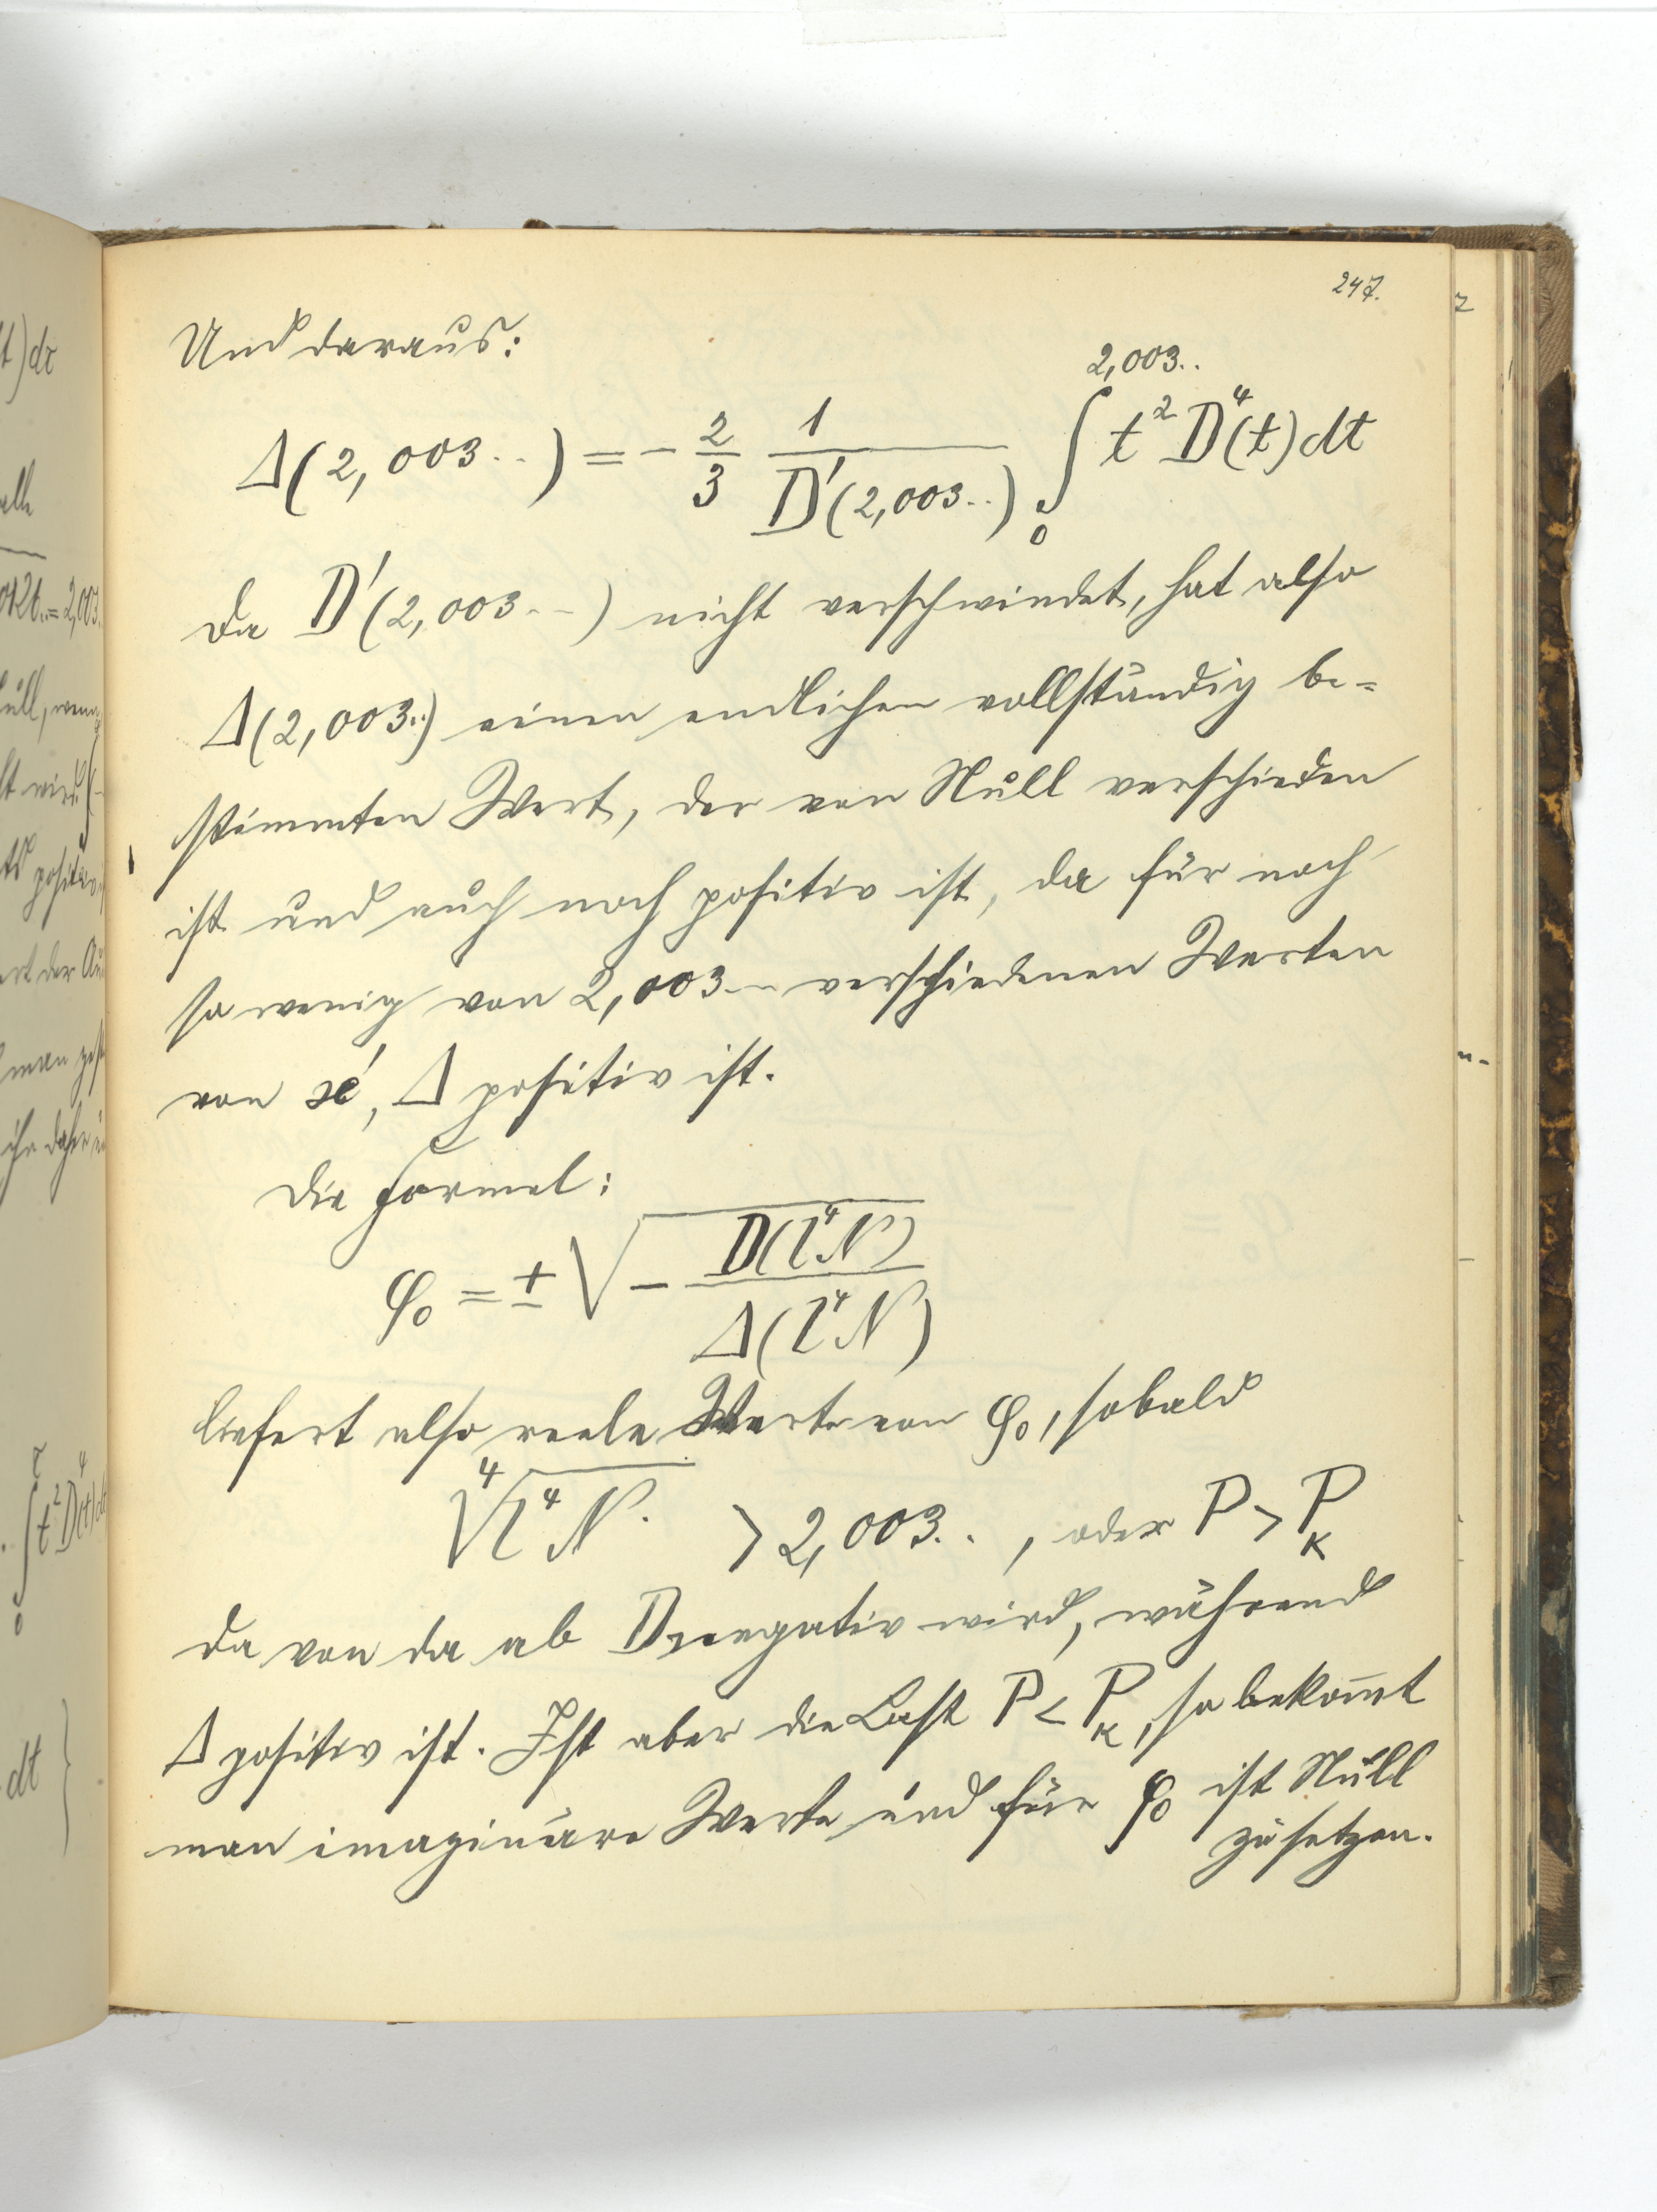 247.
Und daraus:
Δ(2,003..) = - 2/3 1/D'(2,003..) ∫₀^{2,003..} t² D⁴(t) dt
da D'(2,003..) nicht verschwindet, hat also
Δ(2,003..) einen endlichen vollständig be=
stimmten Wert, der von Null verschieden
ist und auch noch positiv ist, da für noch
so wenig von 2,003.. verschiedenen Werten
von ϰ', Δ positiv ist.
Die Formel:
φ₀ = ± √(- D(l⁴N) / Δ(l⁴N))
liefert also reele Werte von φ₀, sobald
⁴√(l⁴N) > 2,003.., oder P > P_K
da von da ab D negativ wird, während
Δ positiv ist. Ist aber die Last P < P_K, so bekom̅t
man imaginäre Werte und für φ₀ ist Null
zu setzen.